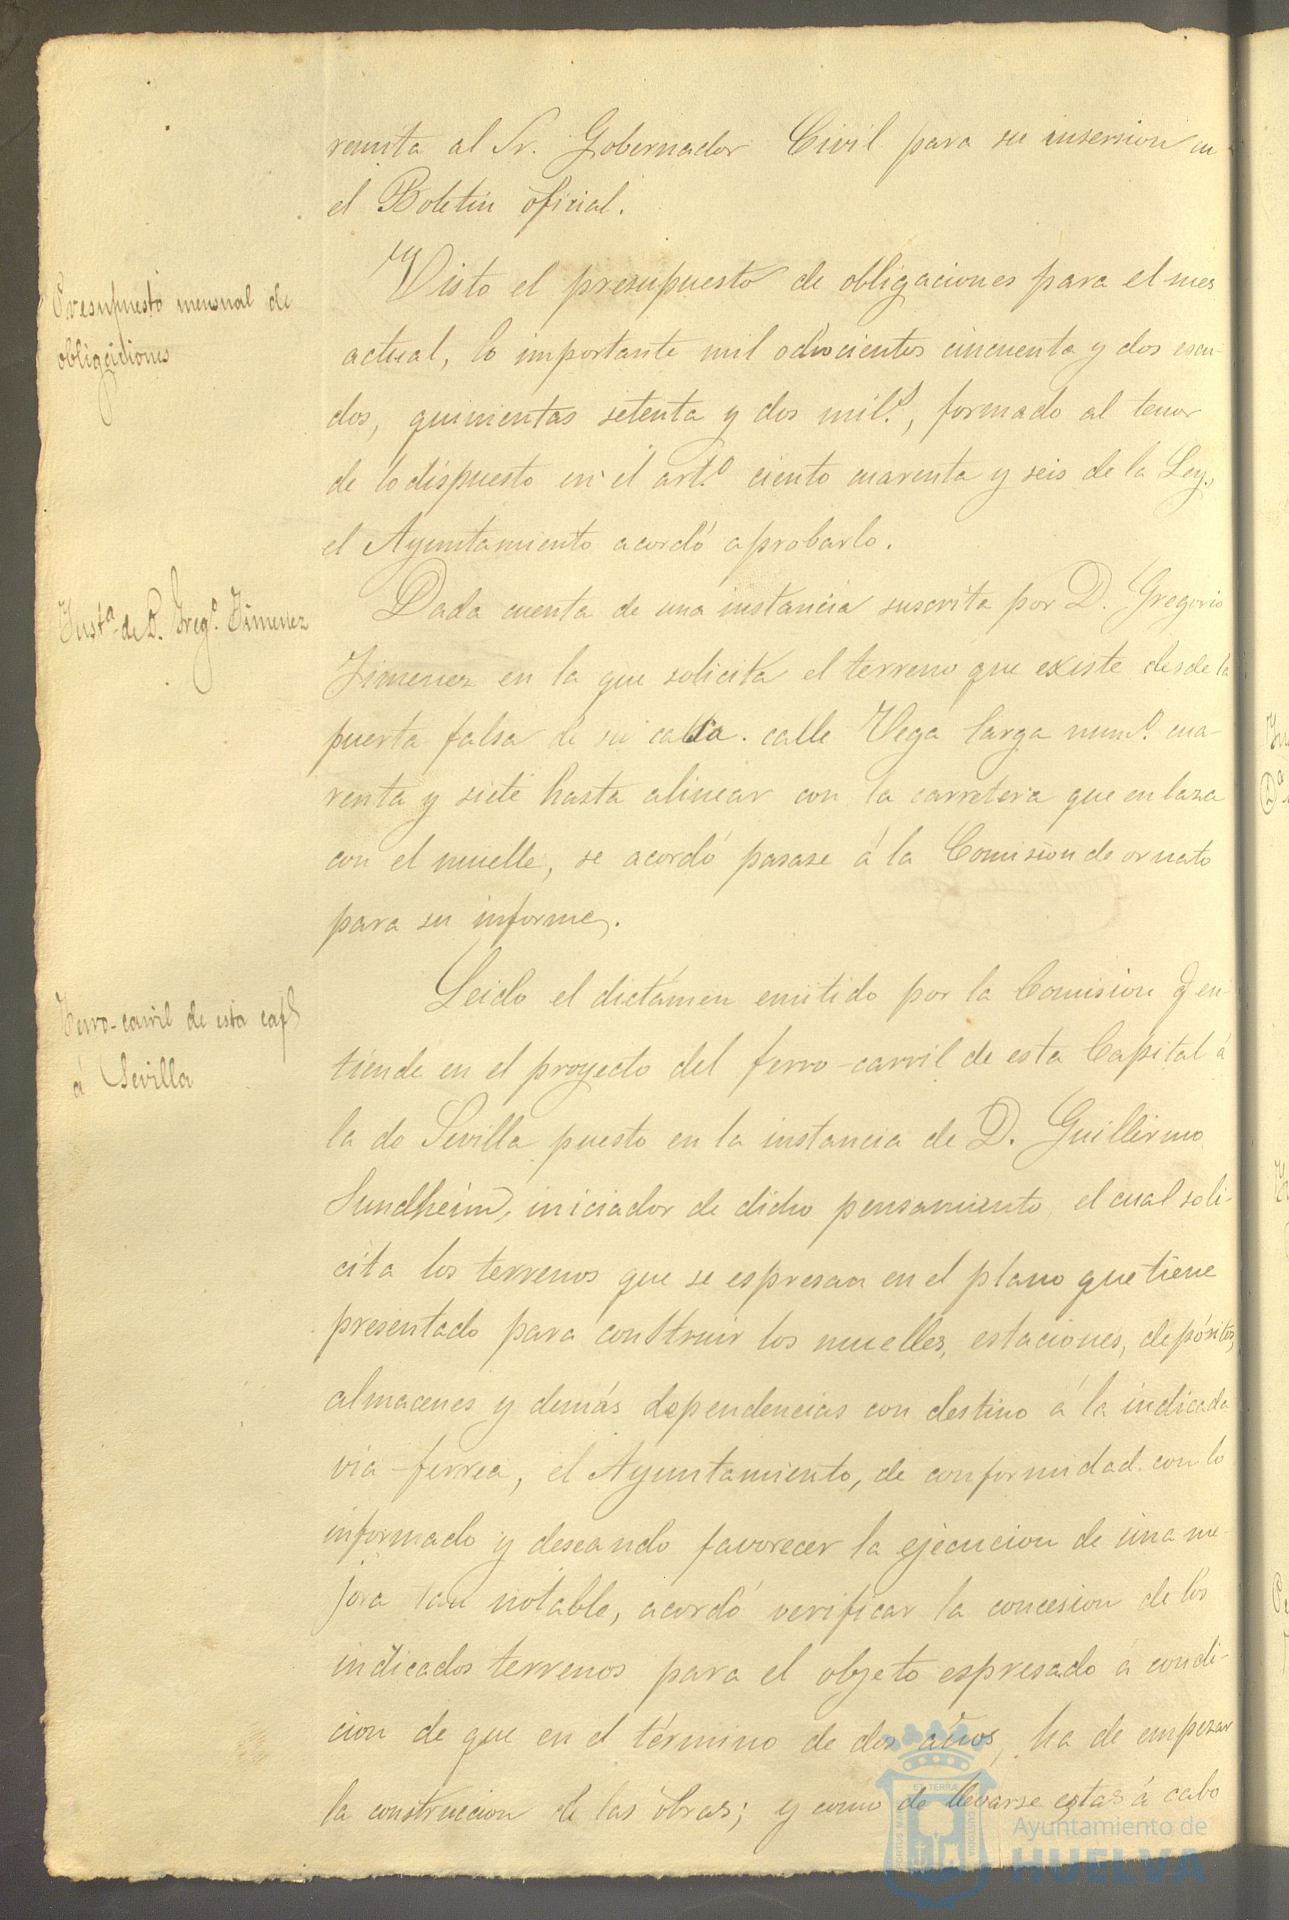 remita al Sr. Gobernador Civil para su insercion en
el Boletin oficial.
Presupuesto mensual de
obligaciones
Visto el presupuesto de obligaciones para el mes
actual, lo importante mil ochocientos cincuenta y dos escu-
dos, quinientas setenta y dos mil.s, formado al tenor
de lo dispuesto en el art.o ciento cuarenta y seis de la Ley,
el Ayuntamiento acordó aprobarlo.
Inst.a de D. Greg.o Jimenez
Dada cuenta de una instancia suscrita por D. Gregorio
Jimenez en la que solicita el terreno que existe desde la
puerta falsa de su casa. calle Vega larga num.o cua-
renta y siete hasta alinear con la carretera que enlaza
con el muelle, se acordó pasase á la Comision de ornato
para su informe.
Ferro-carril de esta cap.l
á Sevilla
Leido el dictámen emitido por la Comision q en-
tiende en el proyecto del ferro-carril de esta Capital á
la de Sevilla puesto en la instancia de D. Guillermo
Sundheim, iniciador de dicho pensamiento, el cual soli-
cita los terrenos que se espresan en el plano que tiene
presentado para construir los muelles, estaciones, depósitos,
almacenes y demás dependencias con destino á la indicada
via-ferrea, el Ayuntamiento, de conformidad con lo
informado y deseando favorecer la ejecucion de una me-
jora tan notable, acordó verificar la concesion de los
indicados terrenos para el objeto espresado á condi-
cion de que en el término de dos años, ha de empezar
la construccion de las obras; y como de llevarse estas á cabo
Ayuntamiento de
HUELVA